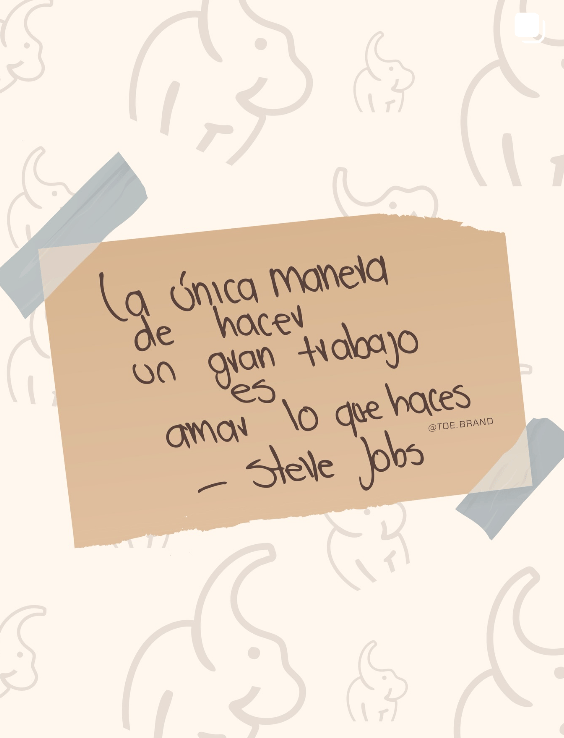 La única manera
de hacer
un gran trabajo
es
amar lo que haces
@TOE.BRAND
— Steve Jobs